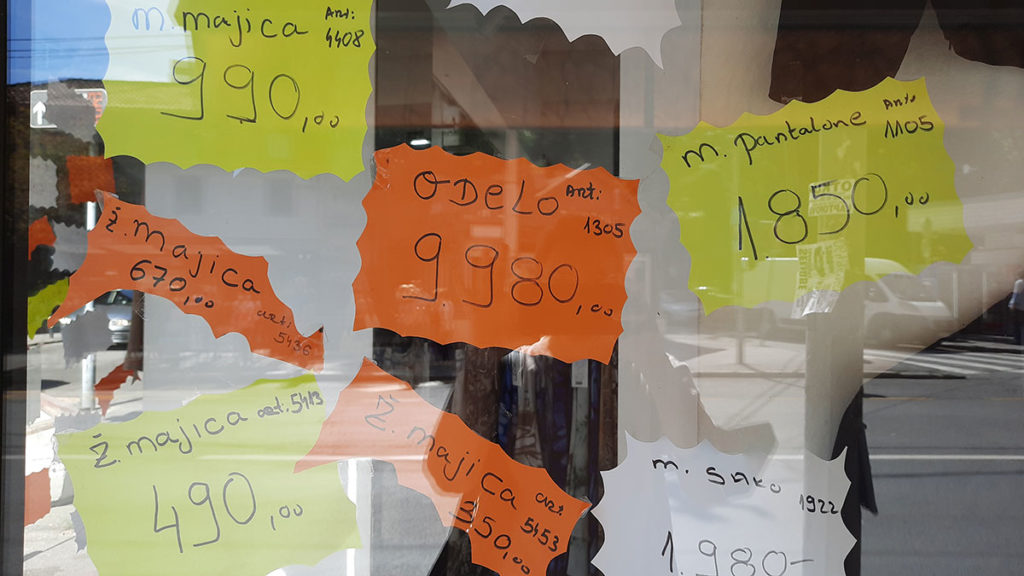 m. majica Art:
4408
990,00
m. pantalone Art:
1105
1850,00
ODELO Art:
1305
9.980,00
ž. majica
670,00
art:
5436
ž. majica art: 5413
490,00
ž. majica art
5453
350,00
m. sako 1922
1.980-